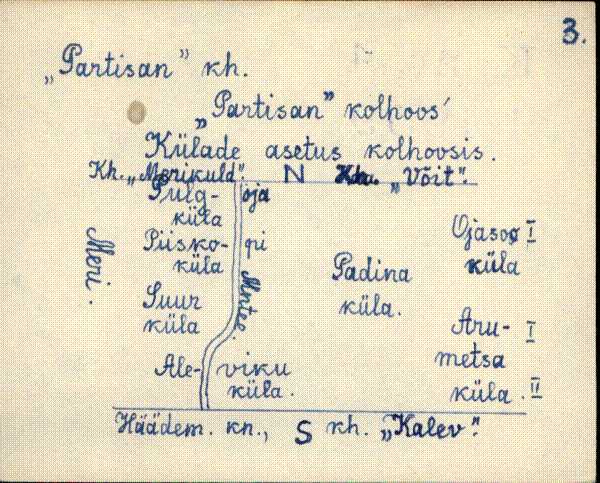 3.
„Partisan” kh.
„Partisan” kolhoos'
Külade asetus kolhoosis.
Kh. „Merikuld”. N Kh. „Võit”.
Pulg- oja
küla
Piisko- pi
küla
Meri.
Mntee.
Suur
küla
Ale- viku
küla.
Padina
küla.
Ojasoo I
küla
Aru- I
metsa
küla. II
Häädem. kn., S kh. „Kalev”.